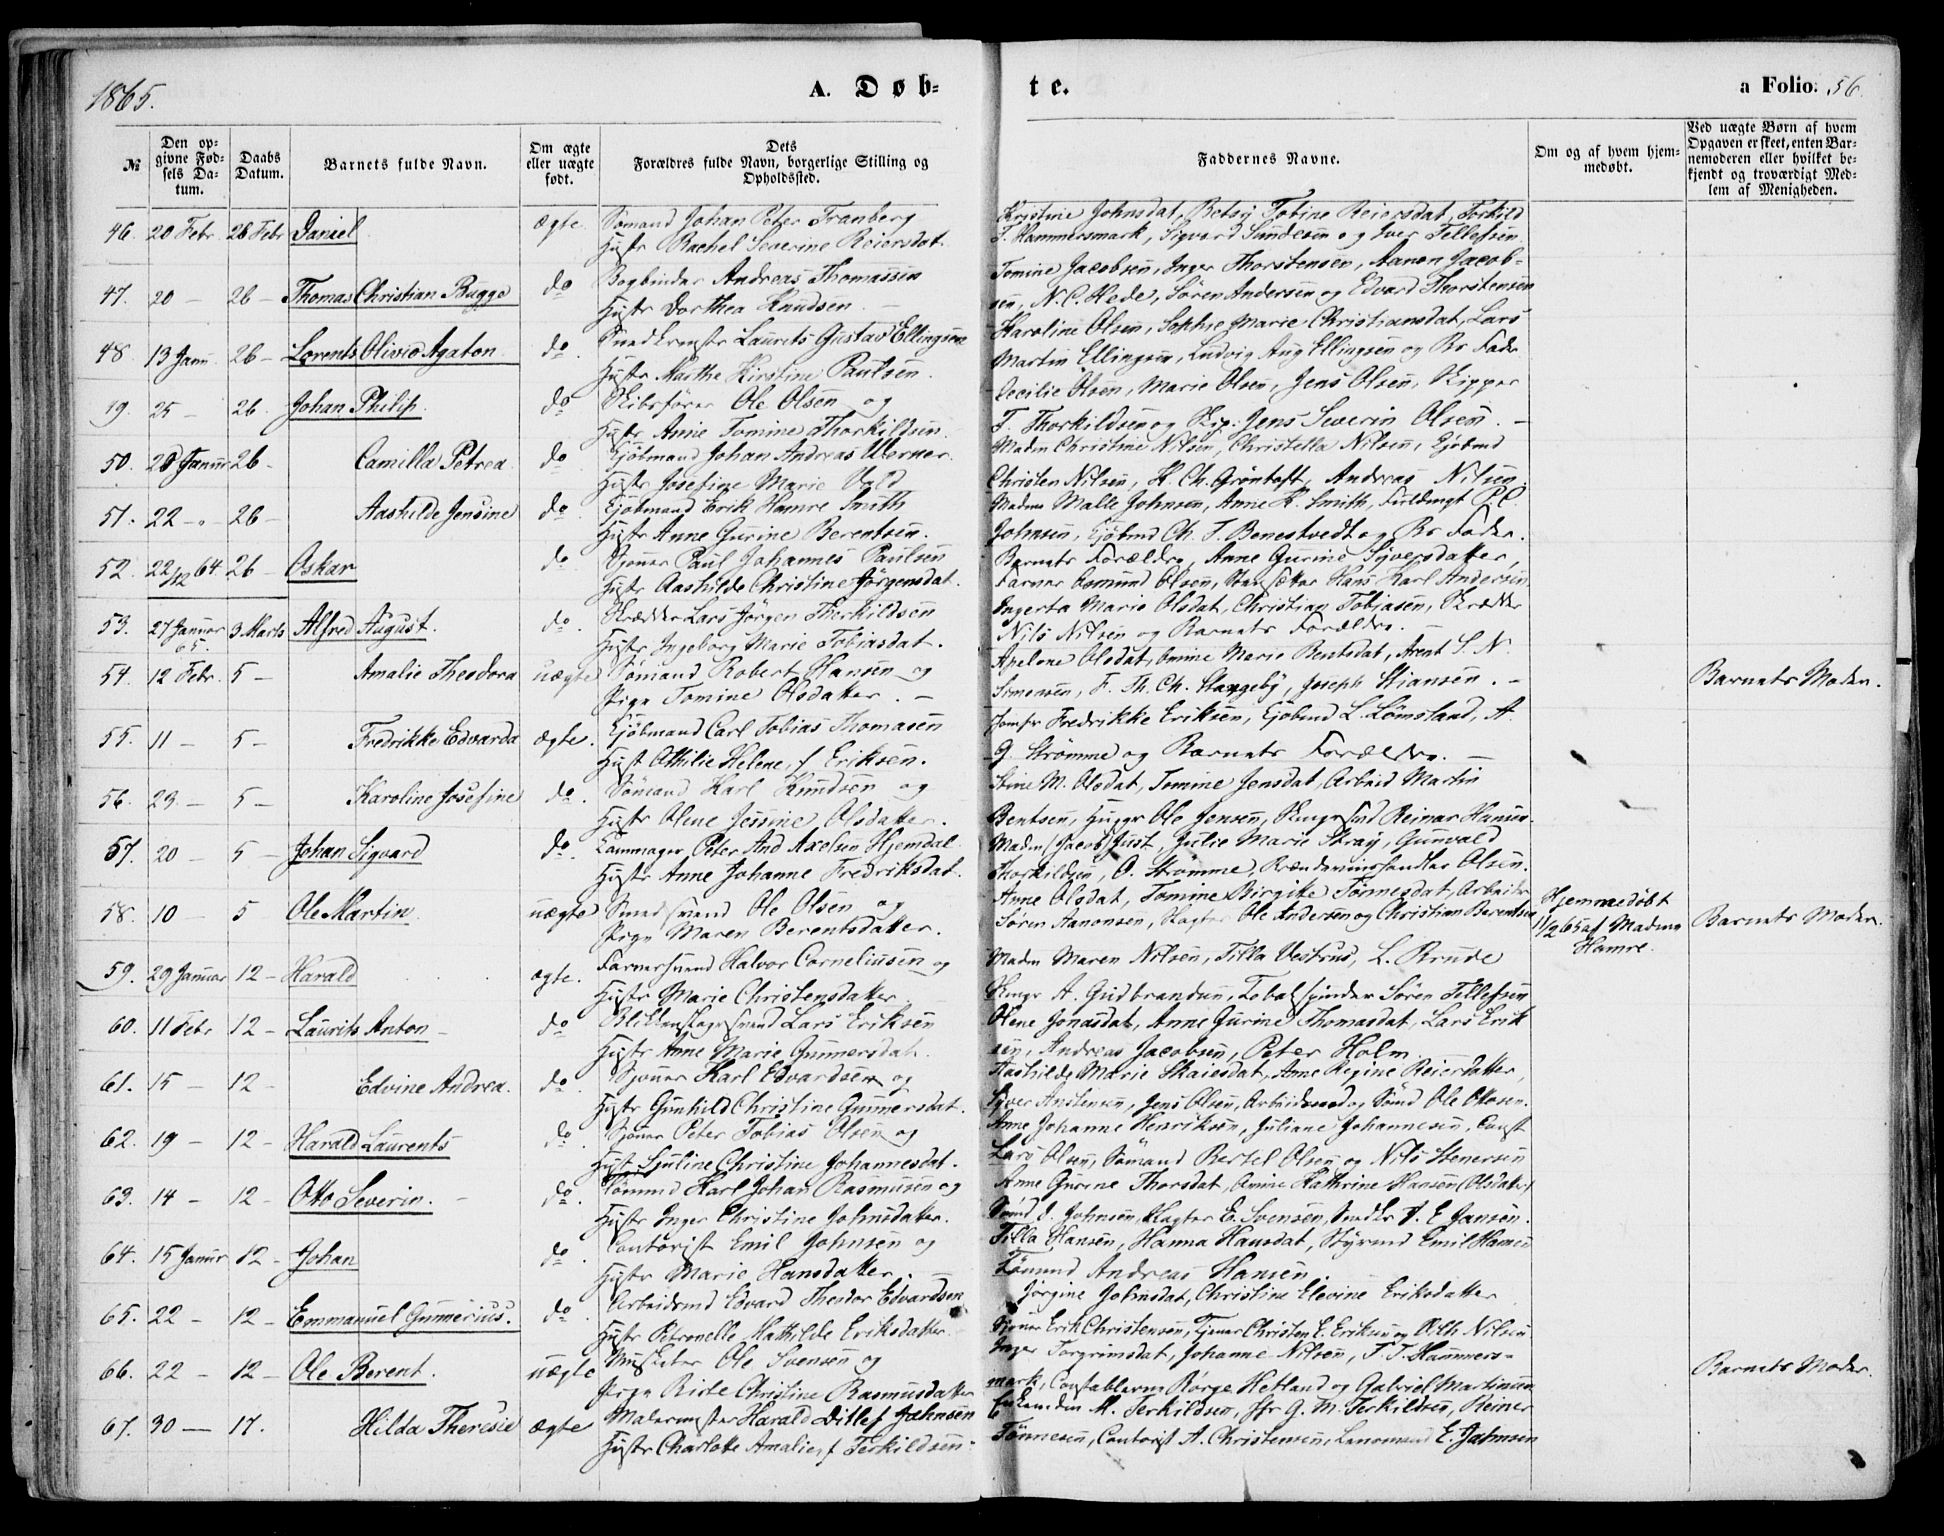 1865.
A. Døb-
te.
a Folio. 56.
№
Den op-
givne Fød-
sels Da-
tum.
Daabs
Datum.
Barnets fulde Navn.
Om ægte
eller uægte
født.
Dets
Forældres fulde Navn, borgerlige Stilling og
Opholdssted.
Faddernes Navne.
Om og af hvem hjem-
medøbt.
Ved uægte Børn af hvem
Opgaven er skeet, enten Bar-
nemoderen eller hvilket be-
kjendt og troværdigt Med-
lem af Menigheden.
46. 20 Febr. 26 Febr Daniel ægte. Sømand Johan Peter Tranberg
Hustr Rachel Severine Reiersdat.
Kristine Johnsdat, Betsy Tobine Reiersdat, Torkild
T. Hammersmark, Sigvard Sundesen og Iver Tellefsen
47. 20 — 26 — Thomas Christian Bugge do Bogbinder Andreas Thomassen
Hustr Dorthea Knudsen —
Tomine Jacobsen, Inger Thorstensen, Aanon Jacob-
sen, N. C. Hede, Søren Andersen og Edvard Thorstensen
48. 13 Janu. 26 — Lorents Olivio Agaton do. Snedkermstr Laurits Gustav Ellingsen
Hustr Marthe Kirstine Paulsen.
Karoline Olsen, Sophie Marie Christiansdat, Lars
Martin Ellingsen, Ludvig Aug Ellingsen og Br Fader
19. 25 — 26. Johan Philip. do Skibsfører Ole Olsen og
Hustr Anne Tomine Thorkildsen.
Cecilie Olsen, Marie Olsen, Jens Olsen, Skipper
T. Thorkildsen og Skip. Jens Severin Olsen. —
50. 28 Januar 26 — Camilla Petrea do Kjøbmand Johan Andreas Werner.
Hustr Josefine Marie
Madm Christine Nilsen, Christella Nilsen, Kjøbmd
Christen Nilsen, H. Ch. Grøntoft, Andreas Nilsen.
51. 22 — 26 — Aashilde Jensine do. Kjøbmand Erik Hamre Smith
Hustr Anne Gurine Berentsen.
Madm Malle Johnsen, Anne K. Smith, Fuldmgt P. C.
Johnsen, Kjøbmd Ch. T. Benestvedt og Br Fader.
52. 22/12 64. 26 — Oskar do. Paul Johannes Paulsen
Hustr Aashilde Christine Jørgensdat.
Barnets Forældre, Anne Gurine Syversdatter,
Farver Osmund Olsen, Hans Karl Andersen
53. 27 Januar 65. 3 Marts Alfred August. do. Skrædder Lars Jørgen Therkildsen
Hustr Ingeborg Marie Tobiasdat.
Ingerta Marie Olsdat, Christian Tobiasen, Skrædder
Nils Nilsen og Barnets Forældre. —
54. 12 Febr. 5 — Amalie Theodora uægte Sømand Robert Hansen og
Pige Tomine Olsdatter. —
Apelone Olsdat, Marie Bentsdat, Arent S. N.
Simensen, F. Th. Ch. Stangeby, Joseph Stiansen. —
Barnets Moder.
55. 11 — 5 — Fredrikke Edvarda ægte. Kjøbmand Carl Tobias Thomasen
Hust Othilie Helene, f Eriksen.
Jomfr Fredrikke Eriksen, Kjøbmd L. Lømsland, A.
G. Strømme og Barnets Forældre. —
56. 23 — 5 — Karoline Josefine do. Sømand Karl Knudsen og
Hustr Olene Jensine Olsdatter.
Stine M. Olsdat, Tomine Jensdat, Arbeid Martin
Bentsen, Hugger Ole Jensen, Reinar Hansen.
57. 20 — 5 — Johan Sigvard do. Kammager Peter And Axelsen Hjemdal
Hustr Anne Johanne Fredriksdat.
Madm Jacob Just, Julie Marie Stray, Gunvald
Thorkildsen, O. Strømme, Brændevinshandler Olsen.
58. 10 — 5 Ole Martin. uægte Smedsvend Ole Olsen og
Pige Maren Berentsdatter.
Anne Olsdat, Tomine Birgitte Tønnesdat, Arbeider
Søren Aanonsen, Slagter Ole Andersen og Christian Berentsen
Hjemmedøbt
11/2 65 af Madam
Hamre.
Barnets Moder.
59. 29 Januar 12 — Harald ægte. Farversvend Halvor Corneliusen og
Hustr Marie Christensdatter.
Madm Maren Nilsen, Tilla Vestrud, L. Brude
A. Gudbrandsen, Tobakspinder Søren Tellefsen
60. 11 Febr 12 — Laurits Anton — do Blikkenslagersvend Lars Eriksen
Hustr Anne Marie Gunnersdat.
Olene Jonasdat, Anne Gurine Thomasdat, Lars Erik
sen, Andreas Jacobsen, Peter Holm
61. 15 — 12 — Edvine Andrea. do. Karl Edvardsen og
Hustr Gunhild Christine Gunnersdat.
Aashilde Marie Skaiesdat, Anne Regine Reiersdatter,
Syver Anstensen, Jens Olsen, Arbeidsmd og Sømd Ole Ottosen.
62. 19 — 12 — Harald Laurents do. Peter Tobias Olsen og
Hust Juline Christine Johannesdat.
Anne Johanne Henriksen, Juliane Johannesen, Const
Lars Olsen, Sømand Bertel Olsen og Nils Stenersen
63. 14 — 12 — Otto Severin. — do. Sømand Karl Johan Rasmusen og
Hustr Inger Christine Johnsdatter.
Anne Gurine Thorsdat, Anne Kathrine Hansen (Olsdatter)
Sømd J. Johnsen, Slagter E. Svensen, Snedkr T. E Jansen.
64. 15 Januar 12 — Johan do. Contorist Emil Johnsen og
Hustr Marie Hansdatter. —
Tilla Hansen, Hanna Hansdat, Styrmd Emil Hansen
Sømand Andreas Hansen.
65. 22 — 12 — Emmanuel Gunnerius. do. Arbeidsmd Edvard Theodor Edvardsen
Hustr Petronelle Mathilde Eriksdatter.
Jørgine Johnsdat, Christine Elevine Eriksdatter
Erik Christensen, Tjener Christen E. Eriksen og Nilsen
66. 22 — 12 — Ole Berent. uægte Musketer Ole Svensen og
Pige Christine Rasmusdatter
Inger Torgrimsdat, Johanne Nilsen, T. T. Hammers-
mark, Constablerne Børge Hetland og Gabriel Martinsen
Barnets Moder.
67. 30 — 17. Hilda Therese ægte Malermester Harald Ditlef Jahnsen
Hustr Charlotte Amalie, f Terkildsen.
M. Terkildsen, Jfr G. M. Terkildsen, Reiner
Tønnesen, Contorist A. Christensen, Lensmand E. Jahnsen